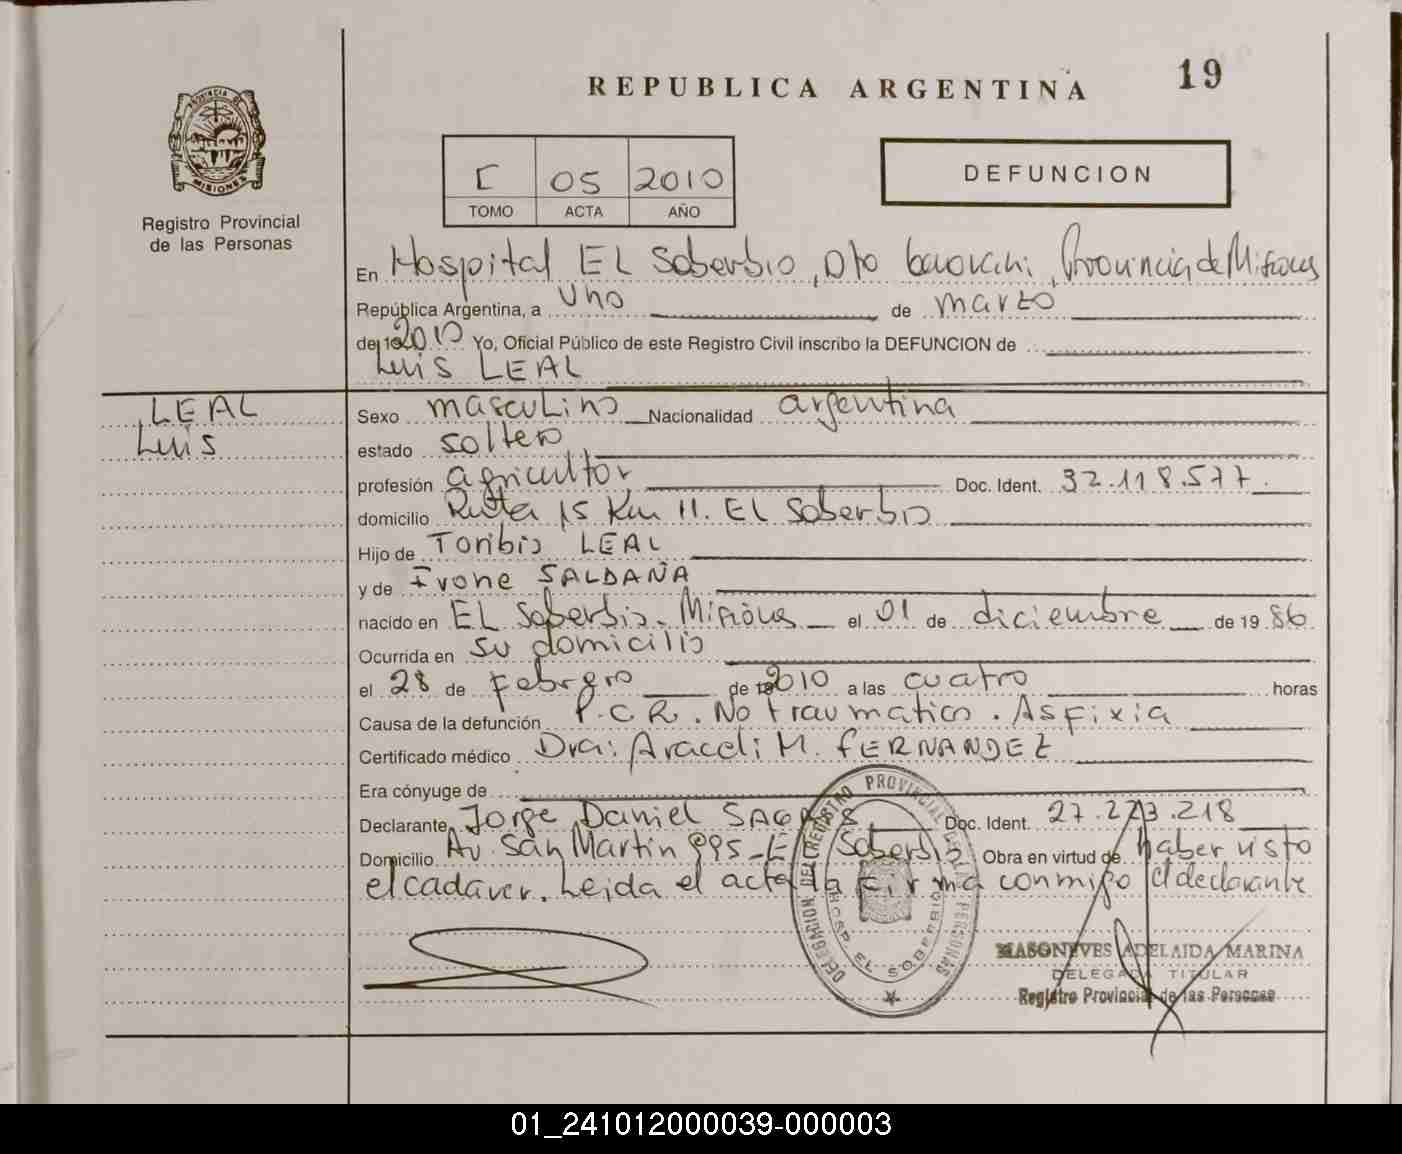 19
REPUBLICA ARGENTINA
PROVINCIA DE
MISIONES
Registro Provincial
de las Personas
I 05 2010
TOMO ACTA AÑO
DEFUNCION
En Hospital EL Soberbio, Dto Guarani, Provincia de Misiones
República Argentina, a uno de marzo
de 19 2010 Yo, Oficial Público de este Registro Civil inscribo la DEFUNCION de
Luis LEAL
LEAL
Luis
Sexo masculino Nacionalidad argentina
estado soltero
profesión agricultor Doc. Ident. 32.118.577
domicilio Ruta 15 Km 11. EL Soberbio
Hijo de Toribio LEAL
y de Ivone SALDAÑA
nacido en EL Soberbio. Misiones el 01 de diciembre de 19 86
Ocurrida en su domicilio
el 28 de Febrero de 19 2010 a las cuatro horas
Causa de la defunción P.C.R. No traumatico. Asfixia
Certificado médico Dra: Araceli M. FERNANDEZ
Era cónyuge de
Declarante Jorge Daniel Doc. Ident. 27.223.218
Domicilio Av. San Martin 995 - El Soberbio Obra en virtud de haber visto
el cadaver. Leida el acta la firma conmigo el declarante
DELEGACION DEL REGISTRO PROVINCIAL DE LAS PERSONAS
HOSP. EL SOBERBIO
MASONEVES ADELAIDA MARINA
DELEGADA TITULAR
Registro Provincial de las Personas
01_241012000039-000003